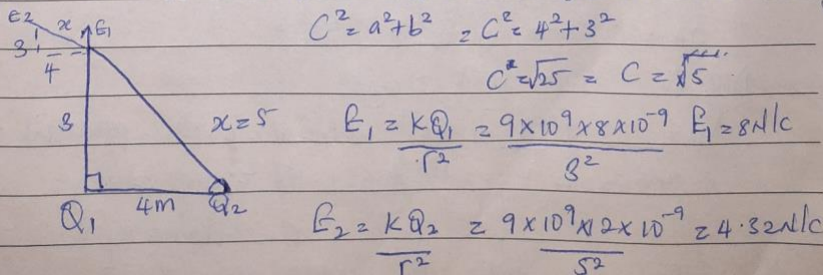 E2 x E₁
3
4
3 x = 5
Q₁ 4m Q₂
C² = a² + b² = C² = 4² + 3²
C² = √25 = C = √5
E₁ = KQ₁/r² = 9 × 10⁹ × 8 × 10⁻⁹/3² E₁ = 8N/C
E₂ = KQ₂/r² = 9 × 10⁹ × 12 × 10⁻⁹/5² = 4.32N/C